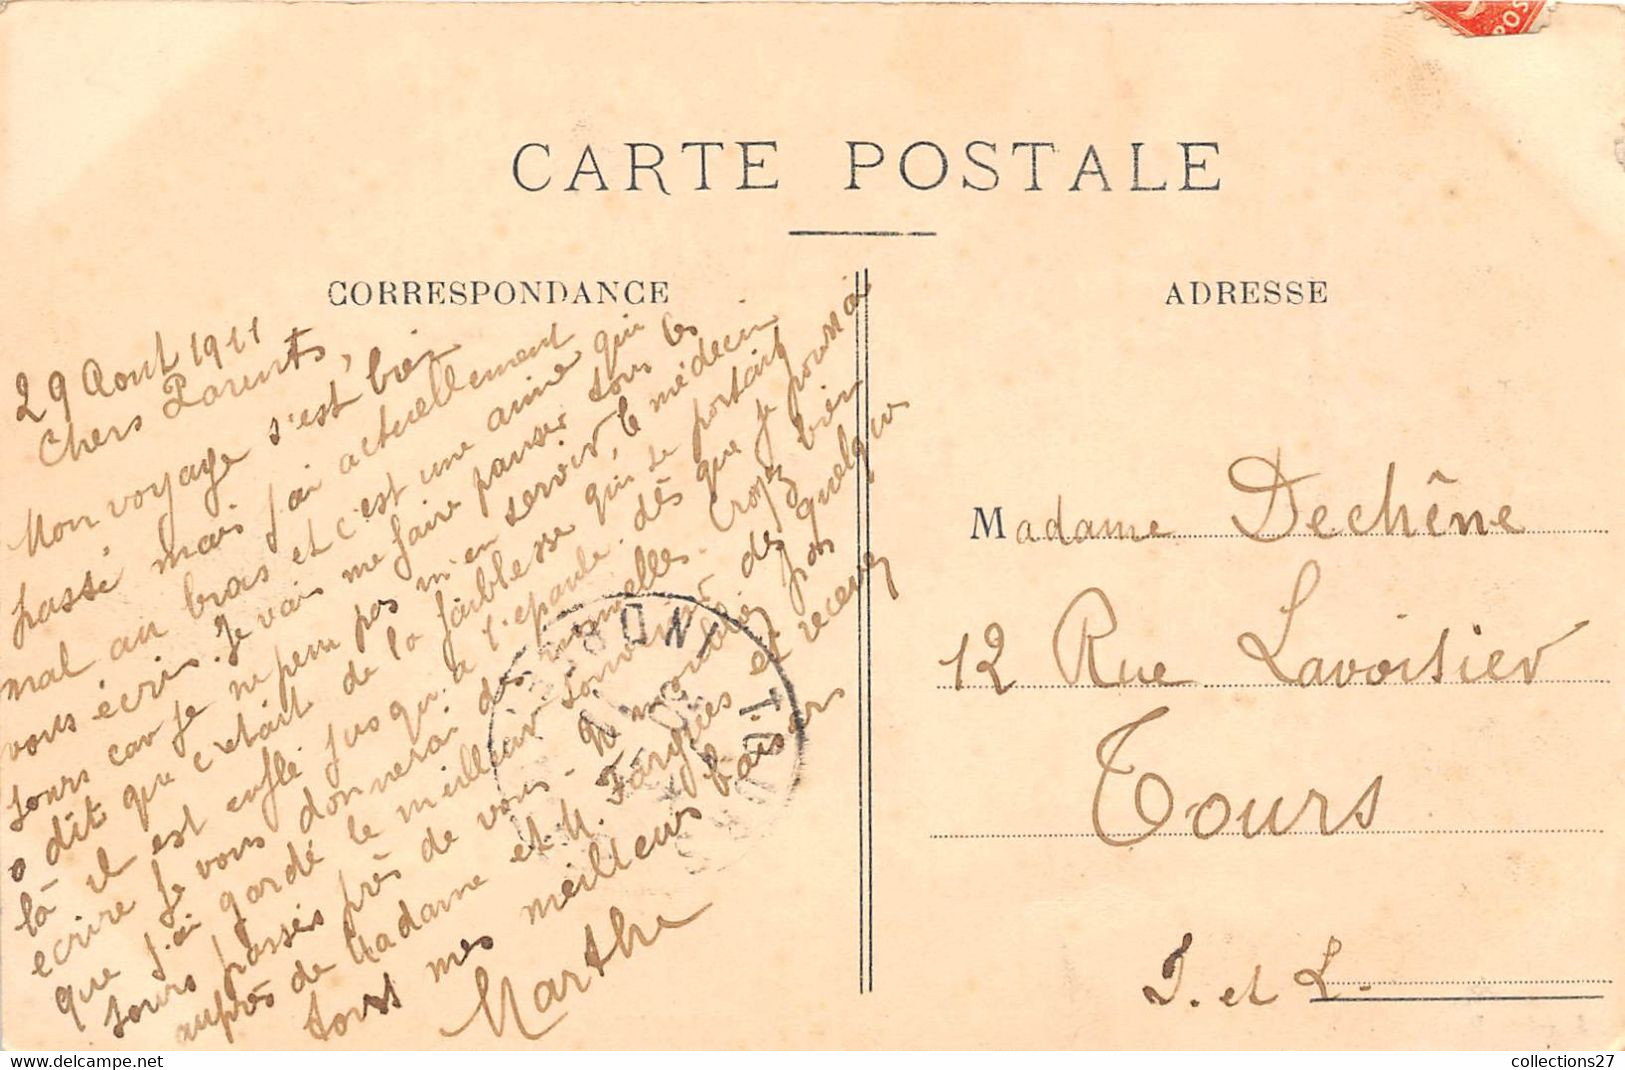 CARTE POSTALE
CORRESPONDANCE
29 Aout 1911
Chers Parents,
Mon voyage s'est bien
passé, mais j'ai actuellement
mal au bras et c'est une amie qui
vous écris. Je vais me faire panser tous les
jours car je ne peux pas m'en servir, le médecin
a dit que c'était de la faiblesse qui se portait
là il est enflé jusqu'à l'epaule. dès que je pourrai
ecrire je vous donnerai des nouvelles. Croyez bien
que j'ai gardé le meilleur souvenir des quelques
jours passés près de vous. N'm'oubliez pas
auprès de Madame et M. Fargées et recevez
tous mes meilleurs baisers
Marthe
ADRESSE
Madame Dechêne
12 Rue Lavoisier
Tours
I. et L.
POS
collections27